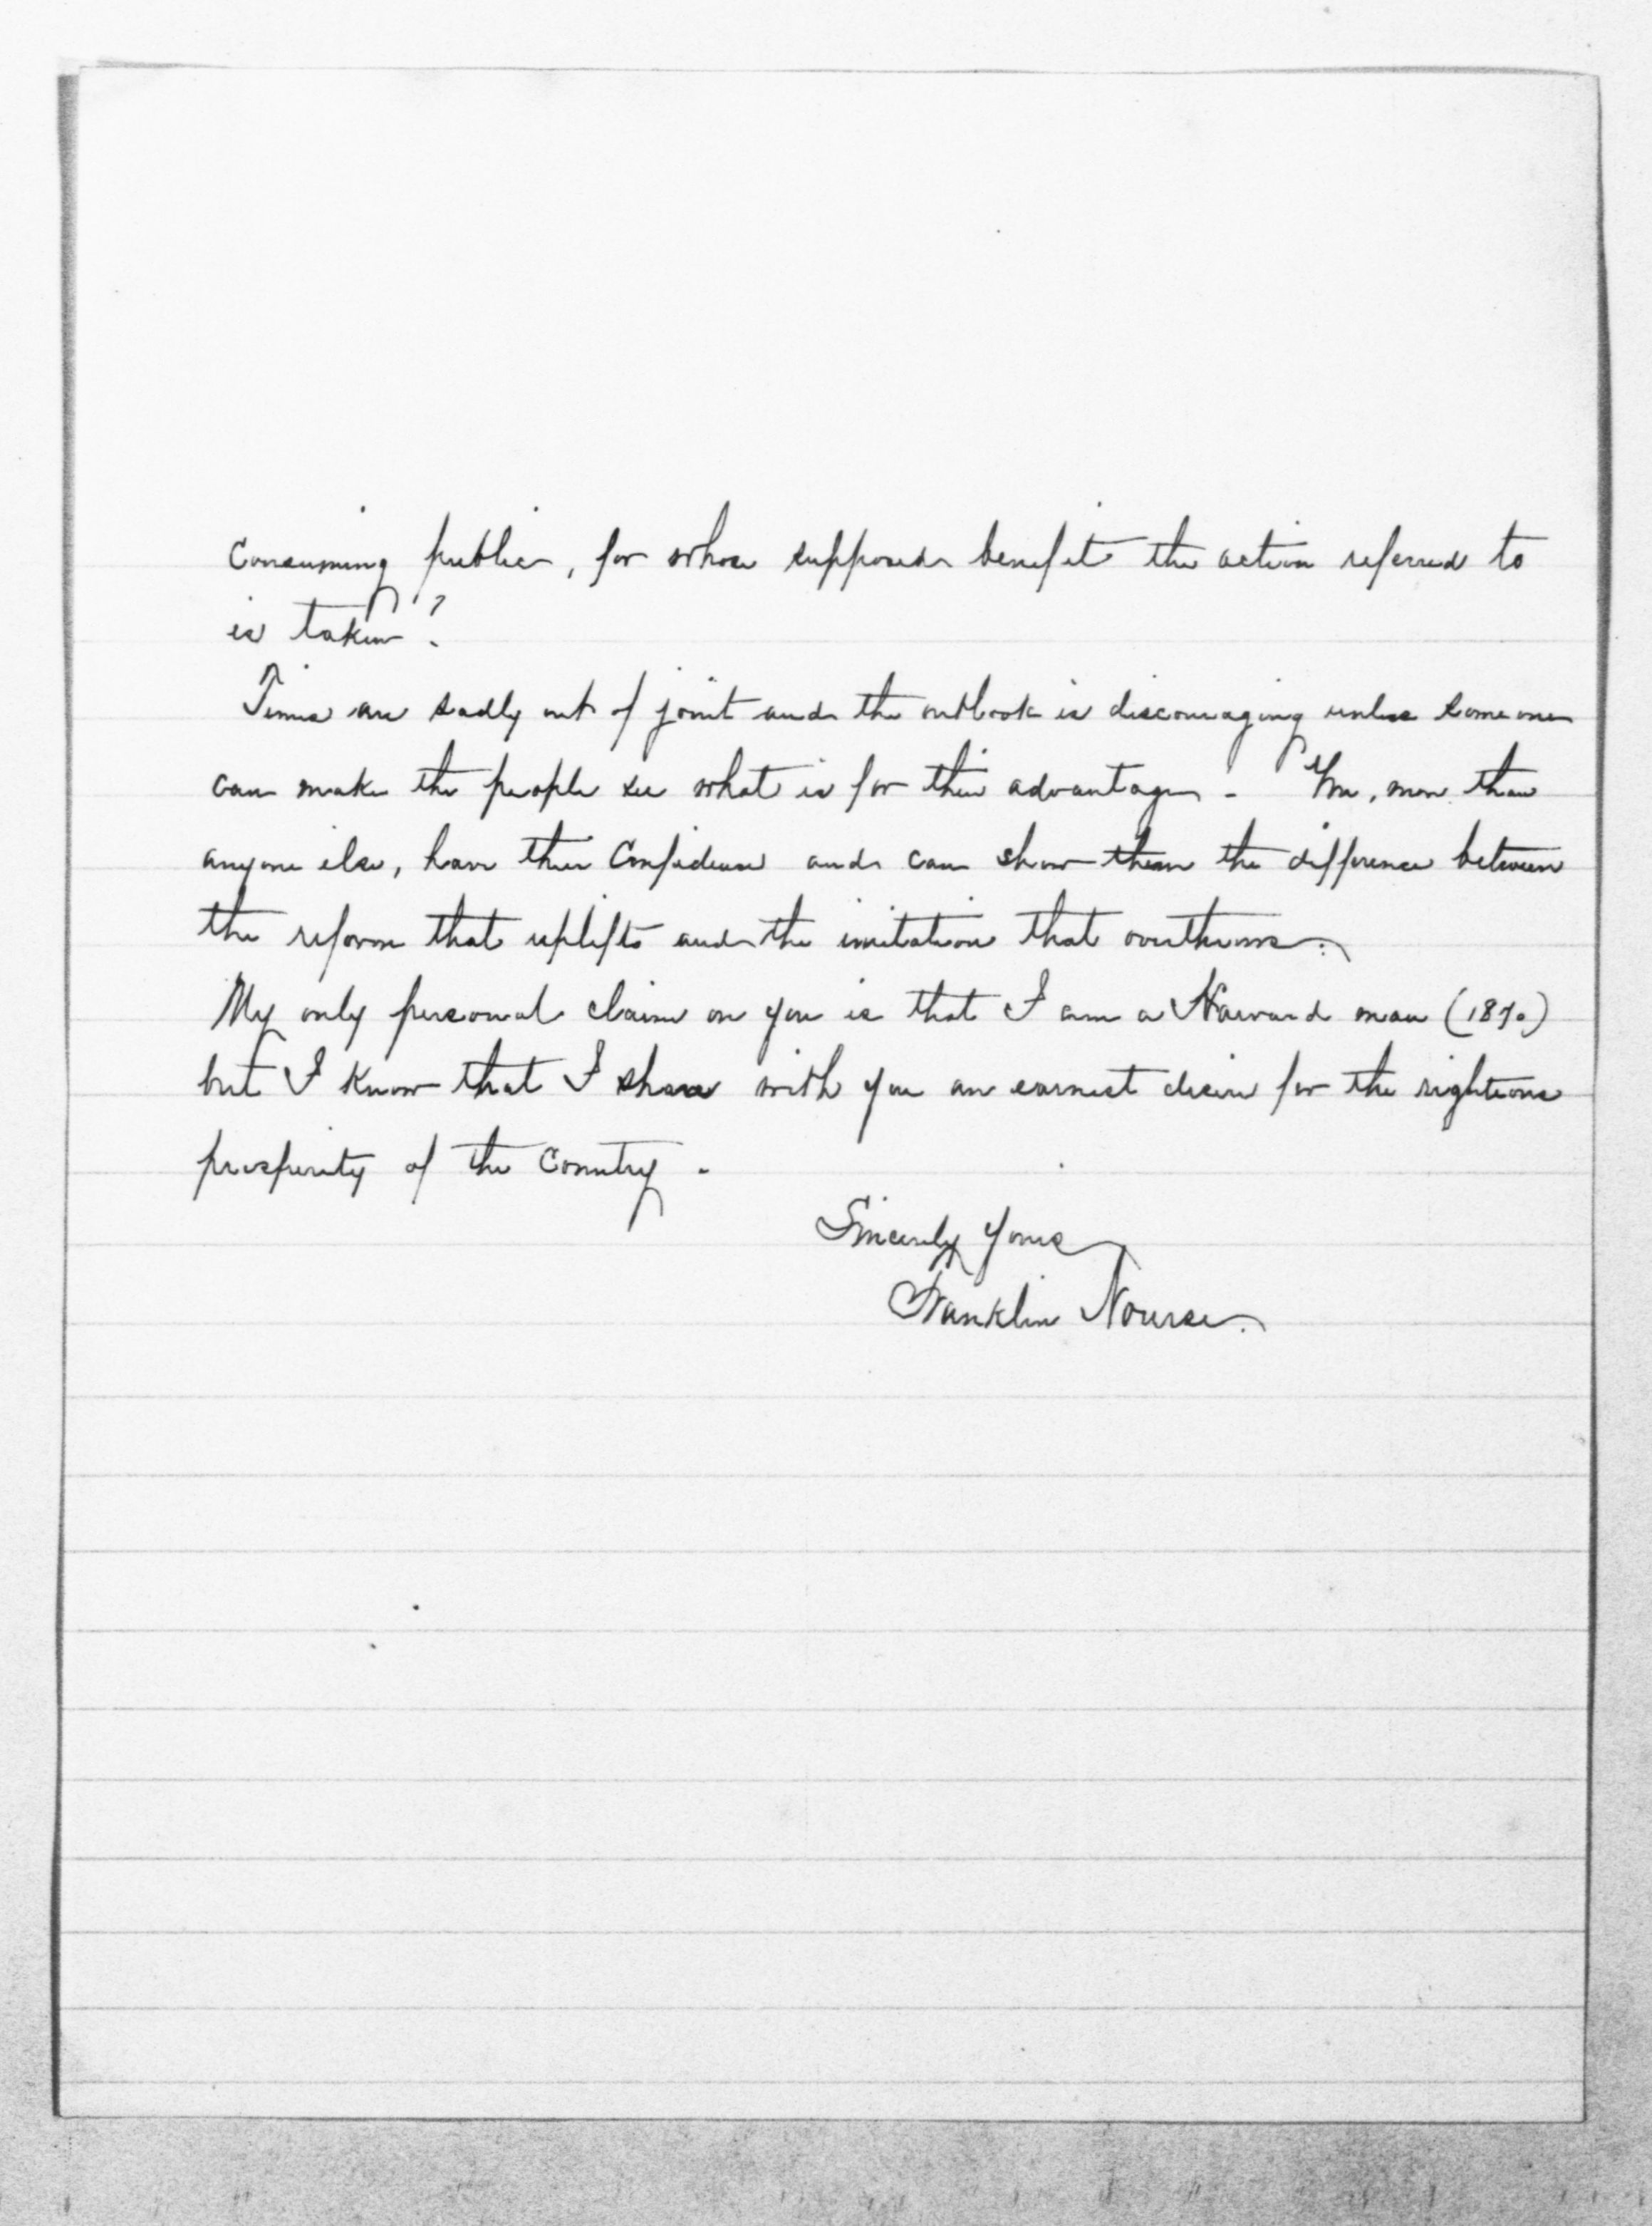 consuming public, for whose supposed benefit the action referred to
is taken?
Times are sadly out of joint and the outlook is discouraging unless some one
can make the people see what is for their advantage. You, more than
anyone else, have their confidence and can show them the difference between
the reform that uplifts and the imitation that overthrows.
My only personal claim on you is that I am a Harvard man (1870)
but I know that I share with you an earnest desire for the righteous
prosperity of the Country.
Sincerely yours
Franklin Nourse.